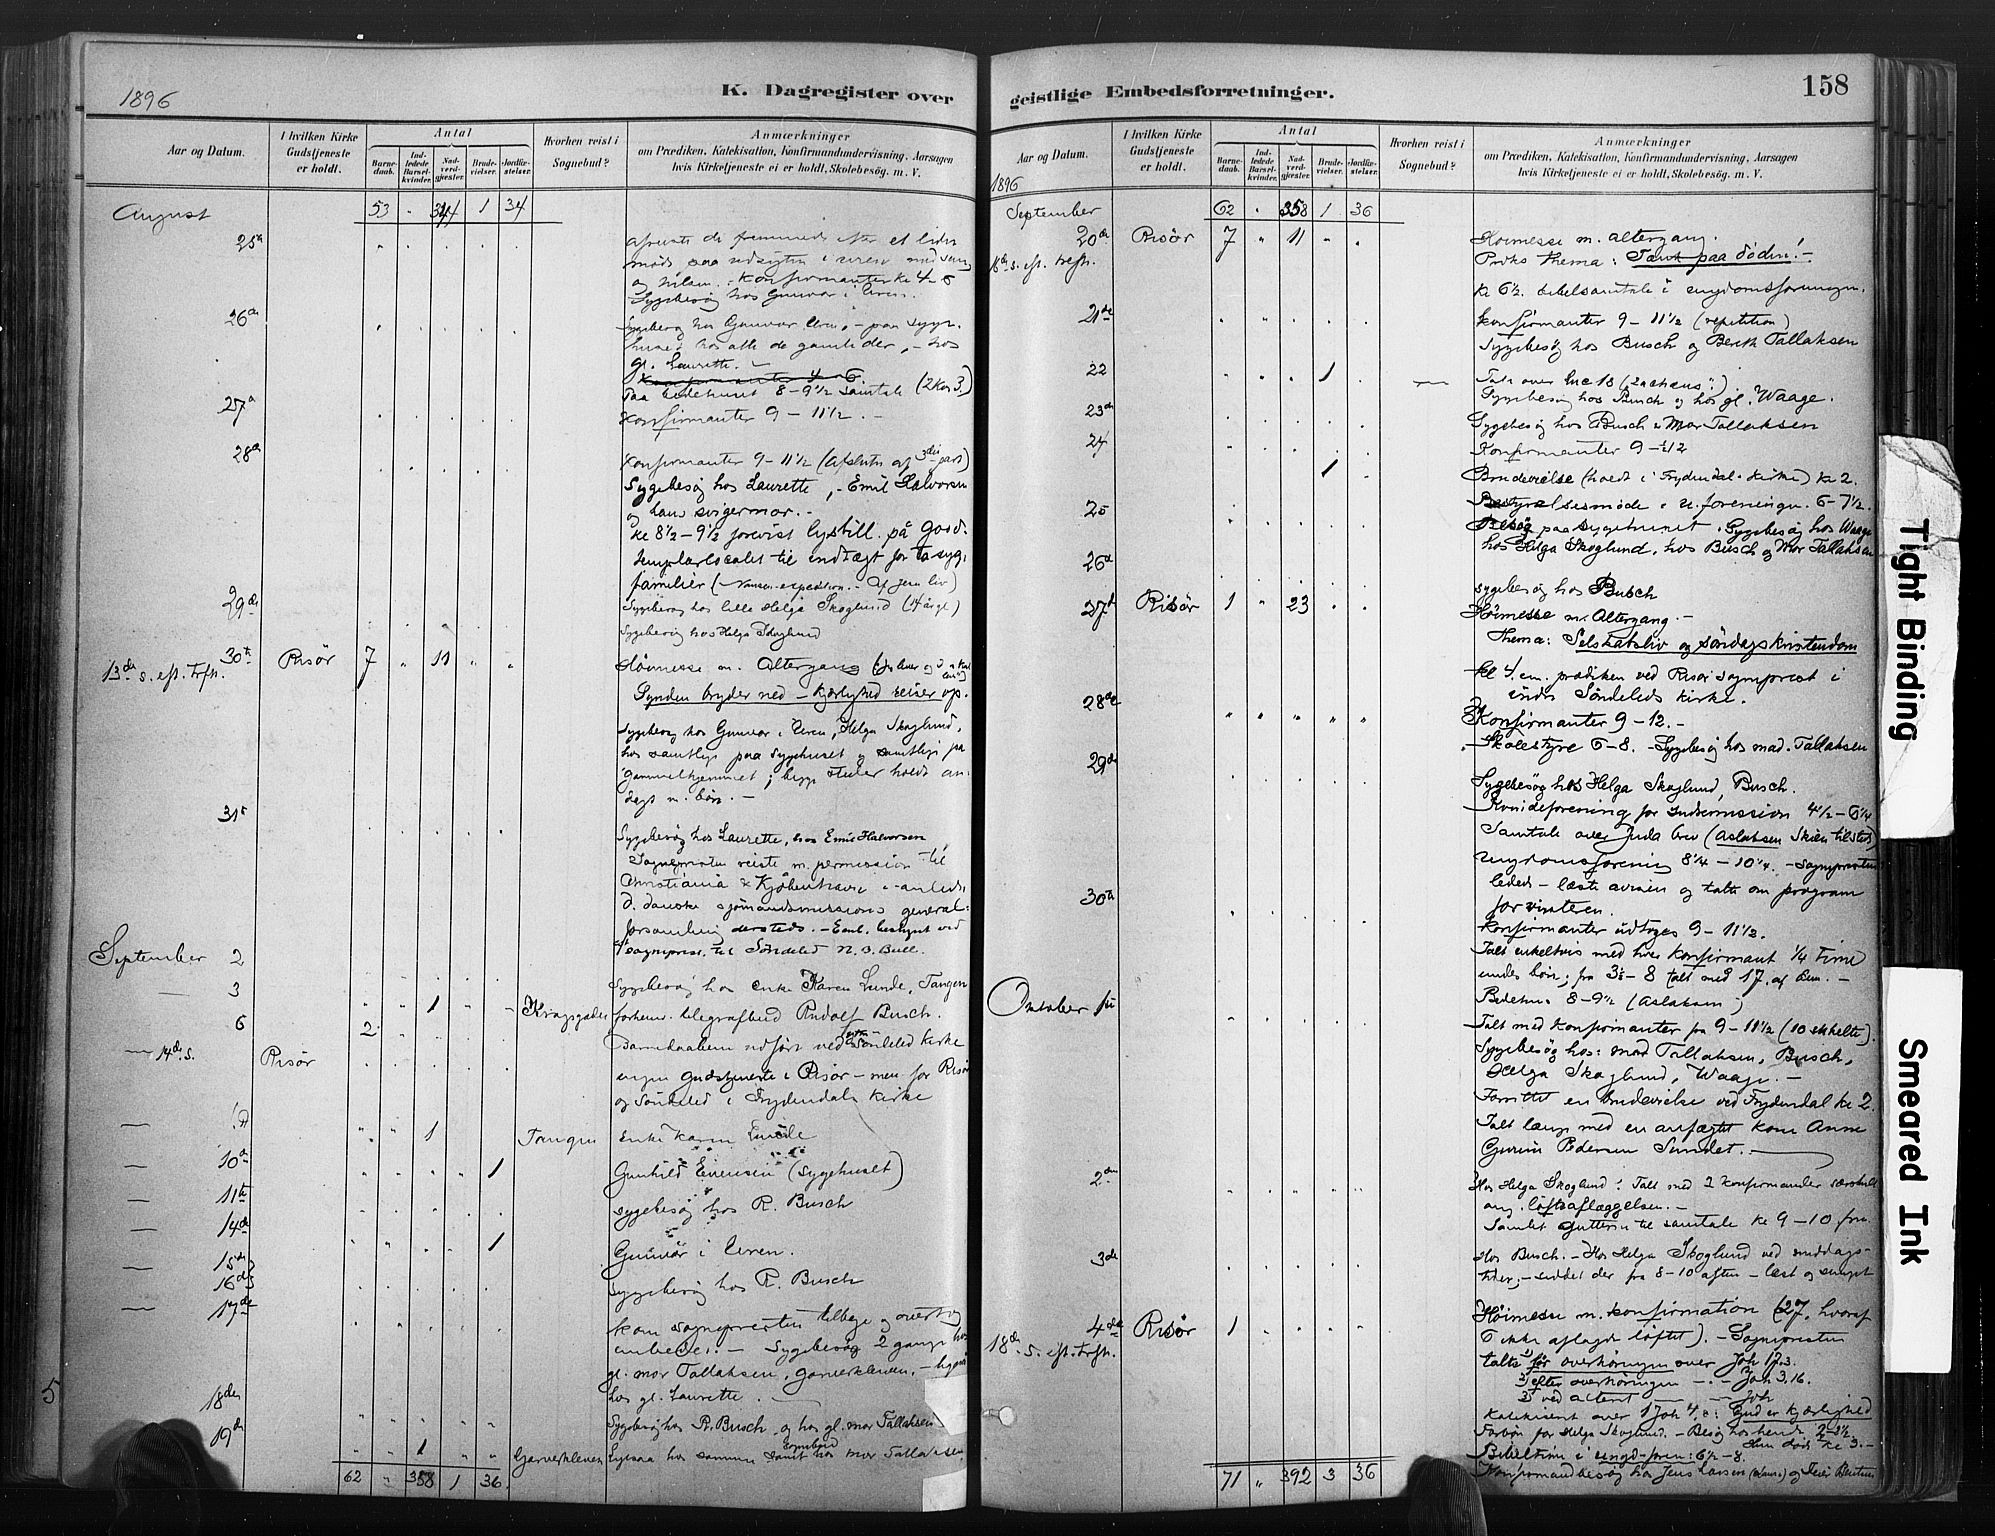 1896
K. Dagregister over
Aar og Datum.
I hvilken Kirke Gudstjeneste er holdt.
Antal
Barnedaab.
Indledede Barselkvinder.
Nadverdgjester.
Brudevielser.
Jordfæstelser.
Hvorhen reist i Sognebud?
Anmærkninger
om Prædiken, Katekisation, Konfirmandundervisning, Aarsagen
hvis Kirketjeneste ei er holdt, Skolebesög. m. V.
August 53 " 1 34
25de
møde paa udsigten i
Konfirmanter kl 4-5
Sygebesøg hos Gunvor i Uren.
26de Sygebesøg hos Gunvor Uren, - paa syge-
huset hos alle de gamle der, - hos
gl. Laurette. -
Konfirmanter 4-6
Paa bedehuset 8-9½ samtale (2 Kor 3.)
27de Konfirmanter 9-11½. -
28de Konfirmanter 9-11½ (Afslutn af 3die part)
Sygebesøg hos Laurette, - Emil Halvorsen
og hans svigermor. -
kl 8½-9½ forevist lysbill. på Good-
templarlocalet til indtægt for to syge
familier (Nansen-expedition. - Af Jesu liv)
29de Sygebesøg hos lille Helga Skoglund (Hauge)
Sygebesøg hos Helga Skoglund
30te Risør 7 " 11 " "
13de s. eft. trefn.
Høimesse m. Altergang
Synden bryder ned - Kjærlighed reiser op.
Sygebesøg hos Gunvor i Uren, Helga Skoglund,
hos samtlige paa sygehuset og samtlige på
gammelhjemmet; begge steder holdt an-
dagt m. bøn. -
31te Sygebesøg hos Laurette, hos Emil Halvorsen
Sognepresten reiste m. permission til
Christiania & Kjøbenhavn i anledn.
d. danske sjømandsmissions general-
forsamling dersteds. - Emb. bestyret ved
sognepr. til Søndeled N. J. Bull.
September 2 Sygebesøg hos enke Karen Lunde, Tangen
— 3 " " 1 " " Kragsgaden forhenv. telegrafbud Rudolf Busch.
6 2 Barnedaaben udført ved Søndeled Kirke
— 14de s. Risør ingen gudstjeneste i Risør - men for Risør
og Søndeled i Frydendals Kirke
— " " 1 Tangen Enke Karen Lunde
— 10de " " " " 1 Gunhild Evensen (sygehuset)
— 11te sygebesøg hos R. Busch
— 14de " " " " 1 Gunvor i Uren.
— 15de
16de Sygebesøg hos R. Busch
— 17de kom sognepresten tilbage og overtog
embedet. - Sygebesøg 2 gange hos
gl. mor Tallaksen, Garverkleven, -
hos gl. Laurette.
18de Sygebesøg hos R. Busch og hos gl. mor Tallaksen
19de " " 1 " " Garverkleven Ligesaa hos samme samt hos mor Tallaksen
62 " 358 1 36
geistlige Embedsforretninger.
158
Aar og Datum.
I hvilken Kirke Gudstjeneste er holdt.
Antal
Barnedaab.
Indledede Barselkvinder.
Nadverdgjester.
Brudevielser.
Jordfæstelser.
Hvorhen reist i Sognebud?
Anmærkninger
om Prædiken, Katekisation, Konfirmandundervisning, Aarsagen
hvis Kirketjeneste ei er holdt, Skolebesög. m. V.
1896
September 62 " 358 1 36
20de Risør 7 " 11 " " Høimesse m. altergang.
16de s. eft. trefn. Prdks thema: Tænk paa døden! -
kl 6½ bibelsamtale i ungdomsforeningen.
21de Konfirmanter 9-11½ (repetition)
Sygebesøg hos Busch og Berth Tallaksen
22 1 Tale over Luc 18 (Zachæus).
Sygebesøg hos Busch og hos gl. Waage.
23de Sygebesøg hos Busch & Mor Tallaksen
24 Konfirmanter 9-12
1 Brudevielse (holdt i Frydendal Kirke) kl 2.
25 Bestyrelsesmøde i U. foreningen. 6-7½.
Besøg paa sygehuset. Sygebesøg hos Waage
hos Helga Skoglund, hos Busch og Mor Tallaksen
26de sygebesøg hos Busch
27de Risør 1 " 23 " " Høimesse m. Altergang. -
Thema: Selskabsliv og søndagskristendom
Kl 4. em. prædiken ved Risør sognepræst i
indre Søndeleds kirke.
28de " " " " " Konfirmanter 9-12. -
Skolestyre 6-8. - Sygebesøg hos mad. Tallaksen
29de Sygebesøg hos Helga Skoglund, Busch.
Kvindeforening for Indremission 4½-6¼
Samtale over Juda brev (Aslaksen Skien tilsted)
Ungdomsforening 8¼-10¼. - Sognepresten
ledede - læste avisen og talte om program
for vinteren.
30te Konfirmanter udtoges 9-11½.
Talt enkeltvis med hver Konfirmant ¼ Time
under bøn; fra 3½-8 talt med 17 af dem. -
Bedehus 8-9½ (Aslaksen)
Oktober 1te Talt med Konfirmanter fra 9-11½ (10 enkelte).
Sygebesøg hos: mad Tallaksen, Busch,
Helga Skoglund, Waage. -
Forrettet en brudevielse ved Frydendal kl 2.
Talt længe med en anfægtet kone Anne
Gurine Pedersen Sundet. -
2den Hos Helga Skoglund. Talt med 2 konfirmander særskilt
ang. løfteaflæggelsen. -
Samlet gutterne til samtale kl 9-10 fm.
3de Hos Busch. - Hos Helga Skoglund ved middags-
tider; - siddet der fra 8-10 aften - læst og sunget
4de Risør 1 " " " " Høimesse m. konfirmation (27, hvoraf
18de s. eft. trefn. 6 ikke aflagde løftet). - Sognepresten
talte 1) før overhøringen over Joh 17.3.
2) efter overhøringen - " - Joh 3.16.
3) ved alteret - Joh
Katekiseret over 1 Joh 4,8: Gud er Kjærlighed
Forbøn for Helga Skoglund. - Besøg hos hende 2-2½.
Hun døde kl 3. -
Bibeltime i ungd-foren: 6½-8.
Konfirmandbesøg hos Jens Larsen
71 " 392 3 36
5
Tight Binding
Smeared Ink